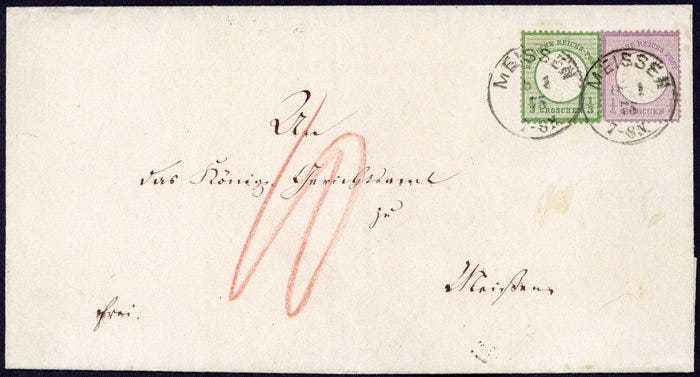 DEUTSCHE REICHS-POST
1/3 GROSCHEN 1/3
DEUTSCHE REICHS-POST
1/4 GROSCHEN
MEISSEN
1
75
7-8N.
MEISSEN
1
75
7-8N.
An
das Königl. Gerichtsamt
zu
Meißen
frei.
10